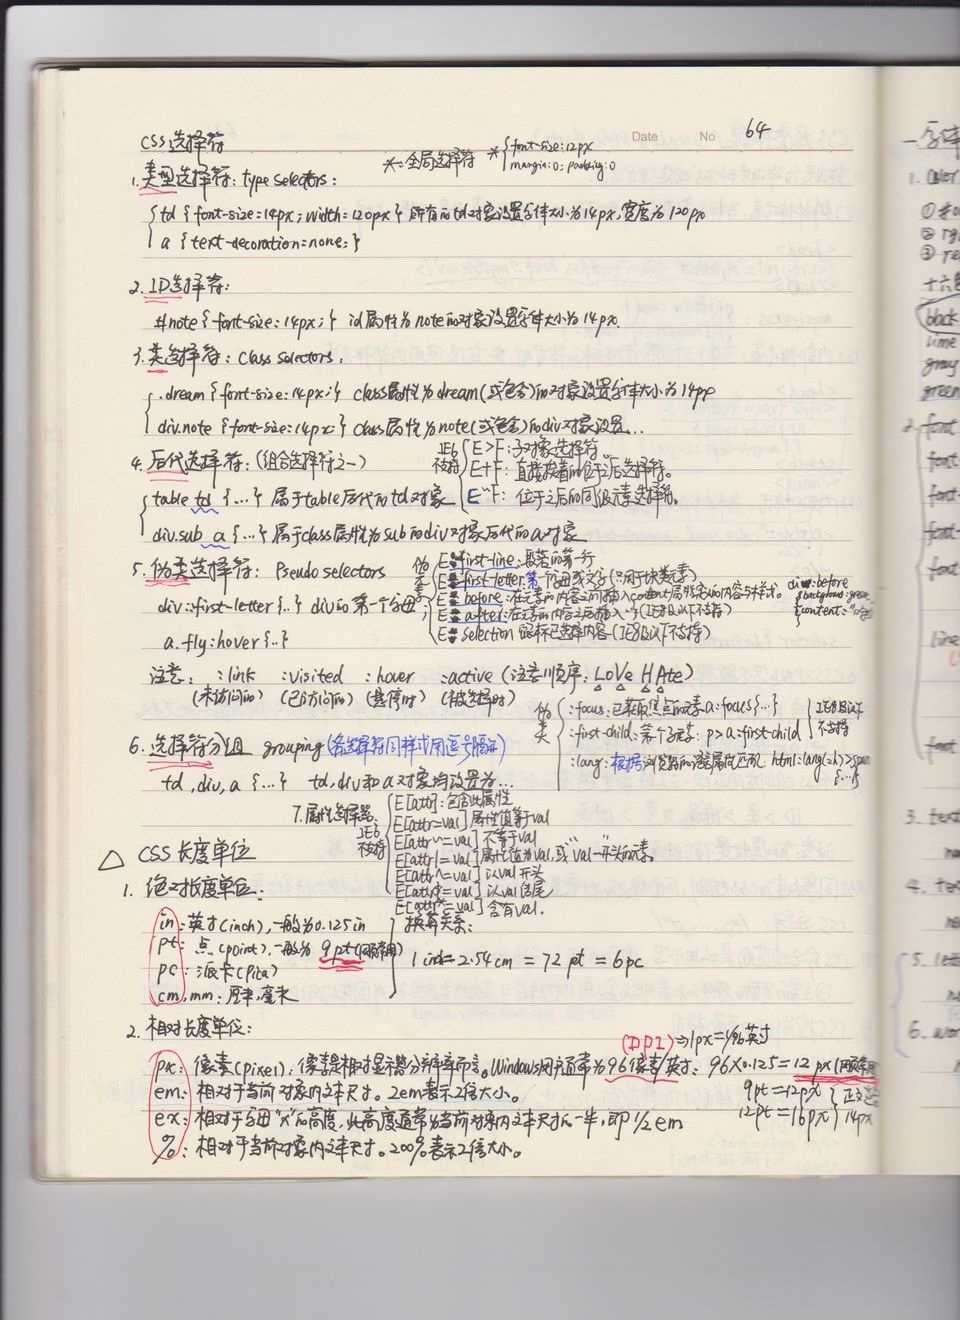 Date No 64
CSS选择符
*:全局选择符 *{font-size:12px
margin:0; padding:0
1.类型选择符: type selectors:
td {font-size=14px; width=120px} 所有的td对象设置字体大小为14px,宽度为120px
a {text-decoration=none;}
2. ID选择符:
#note{font-size:14px;} id属性为note的对象设置字体大小为14px.
3.类选择符: class selectors.
.dream {font-size:14px;} class属性为dream(或包含)的对象设置字体大小为14px
div.note {font-size:14px;} class属性为note(或包含)的div对象设置...
4. 后代选择符:(组合选择符之一)
IE6不支持
E>F: 子对象选择符
E+F: 直接挨着的位于之后选择符。
E~F: 位于之后的同级元素选择符。
table td {...} 属于table后代的td对象
div.sub a {...} 属于class属性为sub的div对象后代的a对象
5. 伪类选择符: Pseudo selectors
div:first-letter{..} div的第一个字母
a.fly:hover{..}
伪类:
E:first-line:段落的第一行
E:first-letter:第一个字母或文字(只用于块类元素)
E:before:在元素的内容之间插入content属性定义的内容与样式。
E:after:在元素的内容之后插入~(IE7及以下不支持)
E:selection 鼠标已选择内容(IE8及以下不支持)
div:before
{background:green;
content:"
}
注意: :link :visited :hover :active (注意顺序: LoVe HAte)
(未访问的) (已访问的) (悬停时) (被选择时)
伪类
:focus:已获取焦点的元素 a:focus{...}
:first-child:第一个子元素: p>a:first-child
:lang:根据浏览器的语言属性匹配 html:lang(zh)>span
{...}
IE8及以下不支持
6. 选择符分组 grouping(各选择符同样式用逗号隔开)
td,div,a {...} td,div和a对象均设置为...
7.属性选择器:
IE6不支持
E[attr]:包含此属性
E[attr=val]属性值等于val
E[attr~=val] 不等于val
E[attr|=val]属性值为val,或"val-"开头的元素。
E[attr^=val]以val开头
E[attr$=val]以val结尾
E[attr*=val]含有val.
△ CSS长度单位
1. 绝对长度单位:
in:英寸(inch),一般为0.125in
pt: 点(point),一般为9pt(网页常用)
pc: 派卡(Pica)
cm,mm:厘米,毫米
换算关系:
1 inch=2.54cm=72pt=6pc
2.相对长度单位:
(DPI)⇒1px=1/96英寸
px: 像素(pixel),像素是相对显示器分辨率而言。Windows用户通常为96像素/英寸; 96×0.125=12px(网页常用
em: 相对于当前对象内文本尺寸。2em表示2倍大小。
ex: 相对于字母"x"的高度,此高度通常为当前对象内文本尺寸的一半,即1/2em
%: 相对于当前对象内文本尺寸。200%表示2倍大小。
9pt=12px
12pt=16px
14px